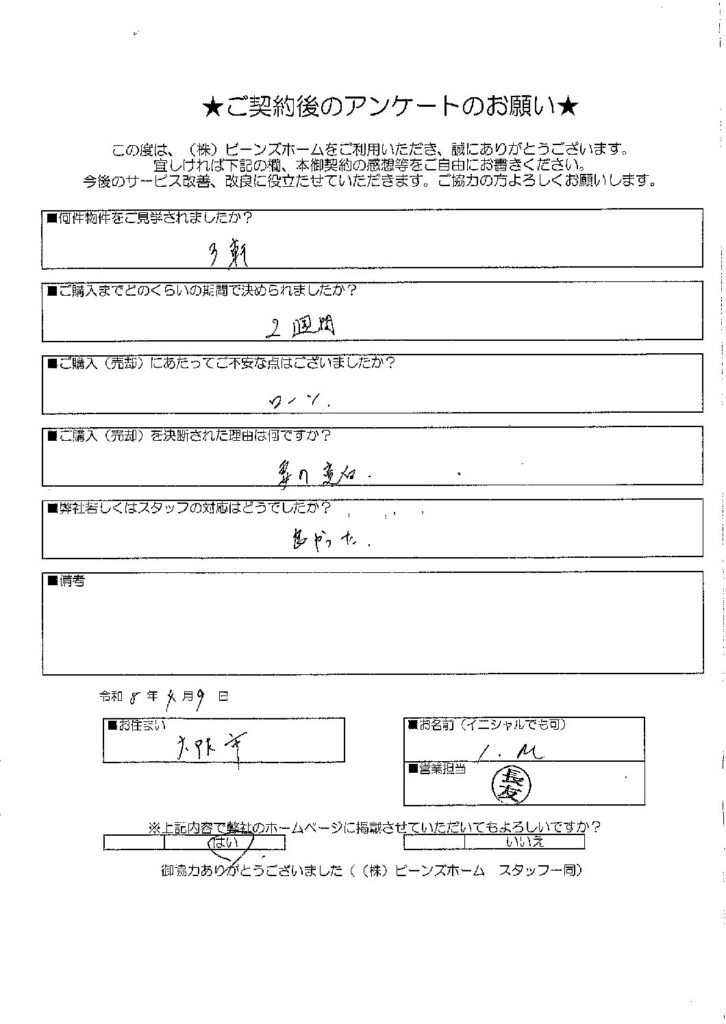 ★ご契約後のアンケートのお願い★
この度は、（株）ビーンズホームをご利用いただき、誠にありがとうございます。
宜しければ下記の欄、本御契約の感想等をご自由にお書きください。
今後のサービス改善、改良に役立たせていただきます。ご協力の方よろしくお願いします。
■何件物件をご見学されましたか？
3軒
■ご購入までどのくらいの期間で決められましたか？
2週間
■ご購入（売却）にあたってご不安な点はございましたか？
ローン.
■ご購入（売却）を決断された理由は何ですか？
妻の意向.
■弊社若しくはスタッフの対応はどうでしたか？
良かった.
■備考
令和 8 年 4 月 9 日
■お住まい
大阪市
■お名前（イニシャルでも可）
I. M
■営業担当
長友
※上記内容で弊社のホームページに掲載させていただいてもよろしいですか？
はい
いいえ
御協力ありがとうございました（（株）ビーンズホーム　スタッフ一同）